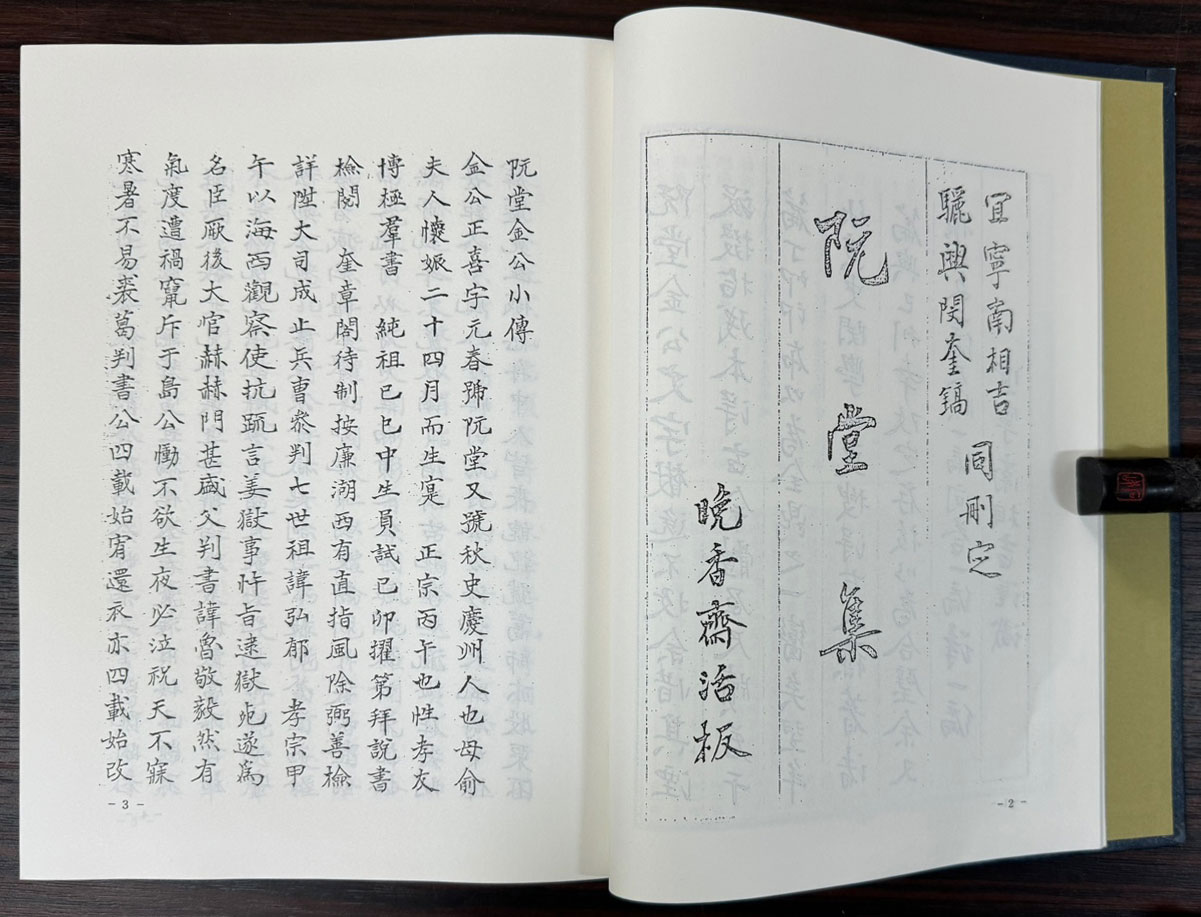 宜寧南相吉
驪興閔奎鎬
同刪定
阮堂集
晚香齋活板
- 2 -
阮堂金公小傳
金公正喜字元春號阮堂又號秋史慶州人也母俞
夫人懷娠二十四月而生寔 正宗丙午也性孝友
博極羣書 純祖己巳中生員試己卯擢第拜說書
檢閱 奎章閣待制按廉湖西有直指風除弼善檢
詳陞大司成止兵曺叅判七世祖諱弘郁 孝宗甲
午以海西觀察使抗疏言姜獄事忤旨逮獄死遂爲
名臣厥後大官赫赫門甚盛父判書諱魯敬毅然有
氣度遭禍竄斥于島公慟不欲生夜必泣祝天不寐
寒暑不易裘葛判書公四載始宥還衣亦四載始改
- 3 -